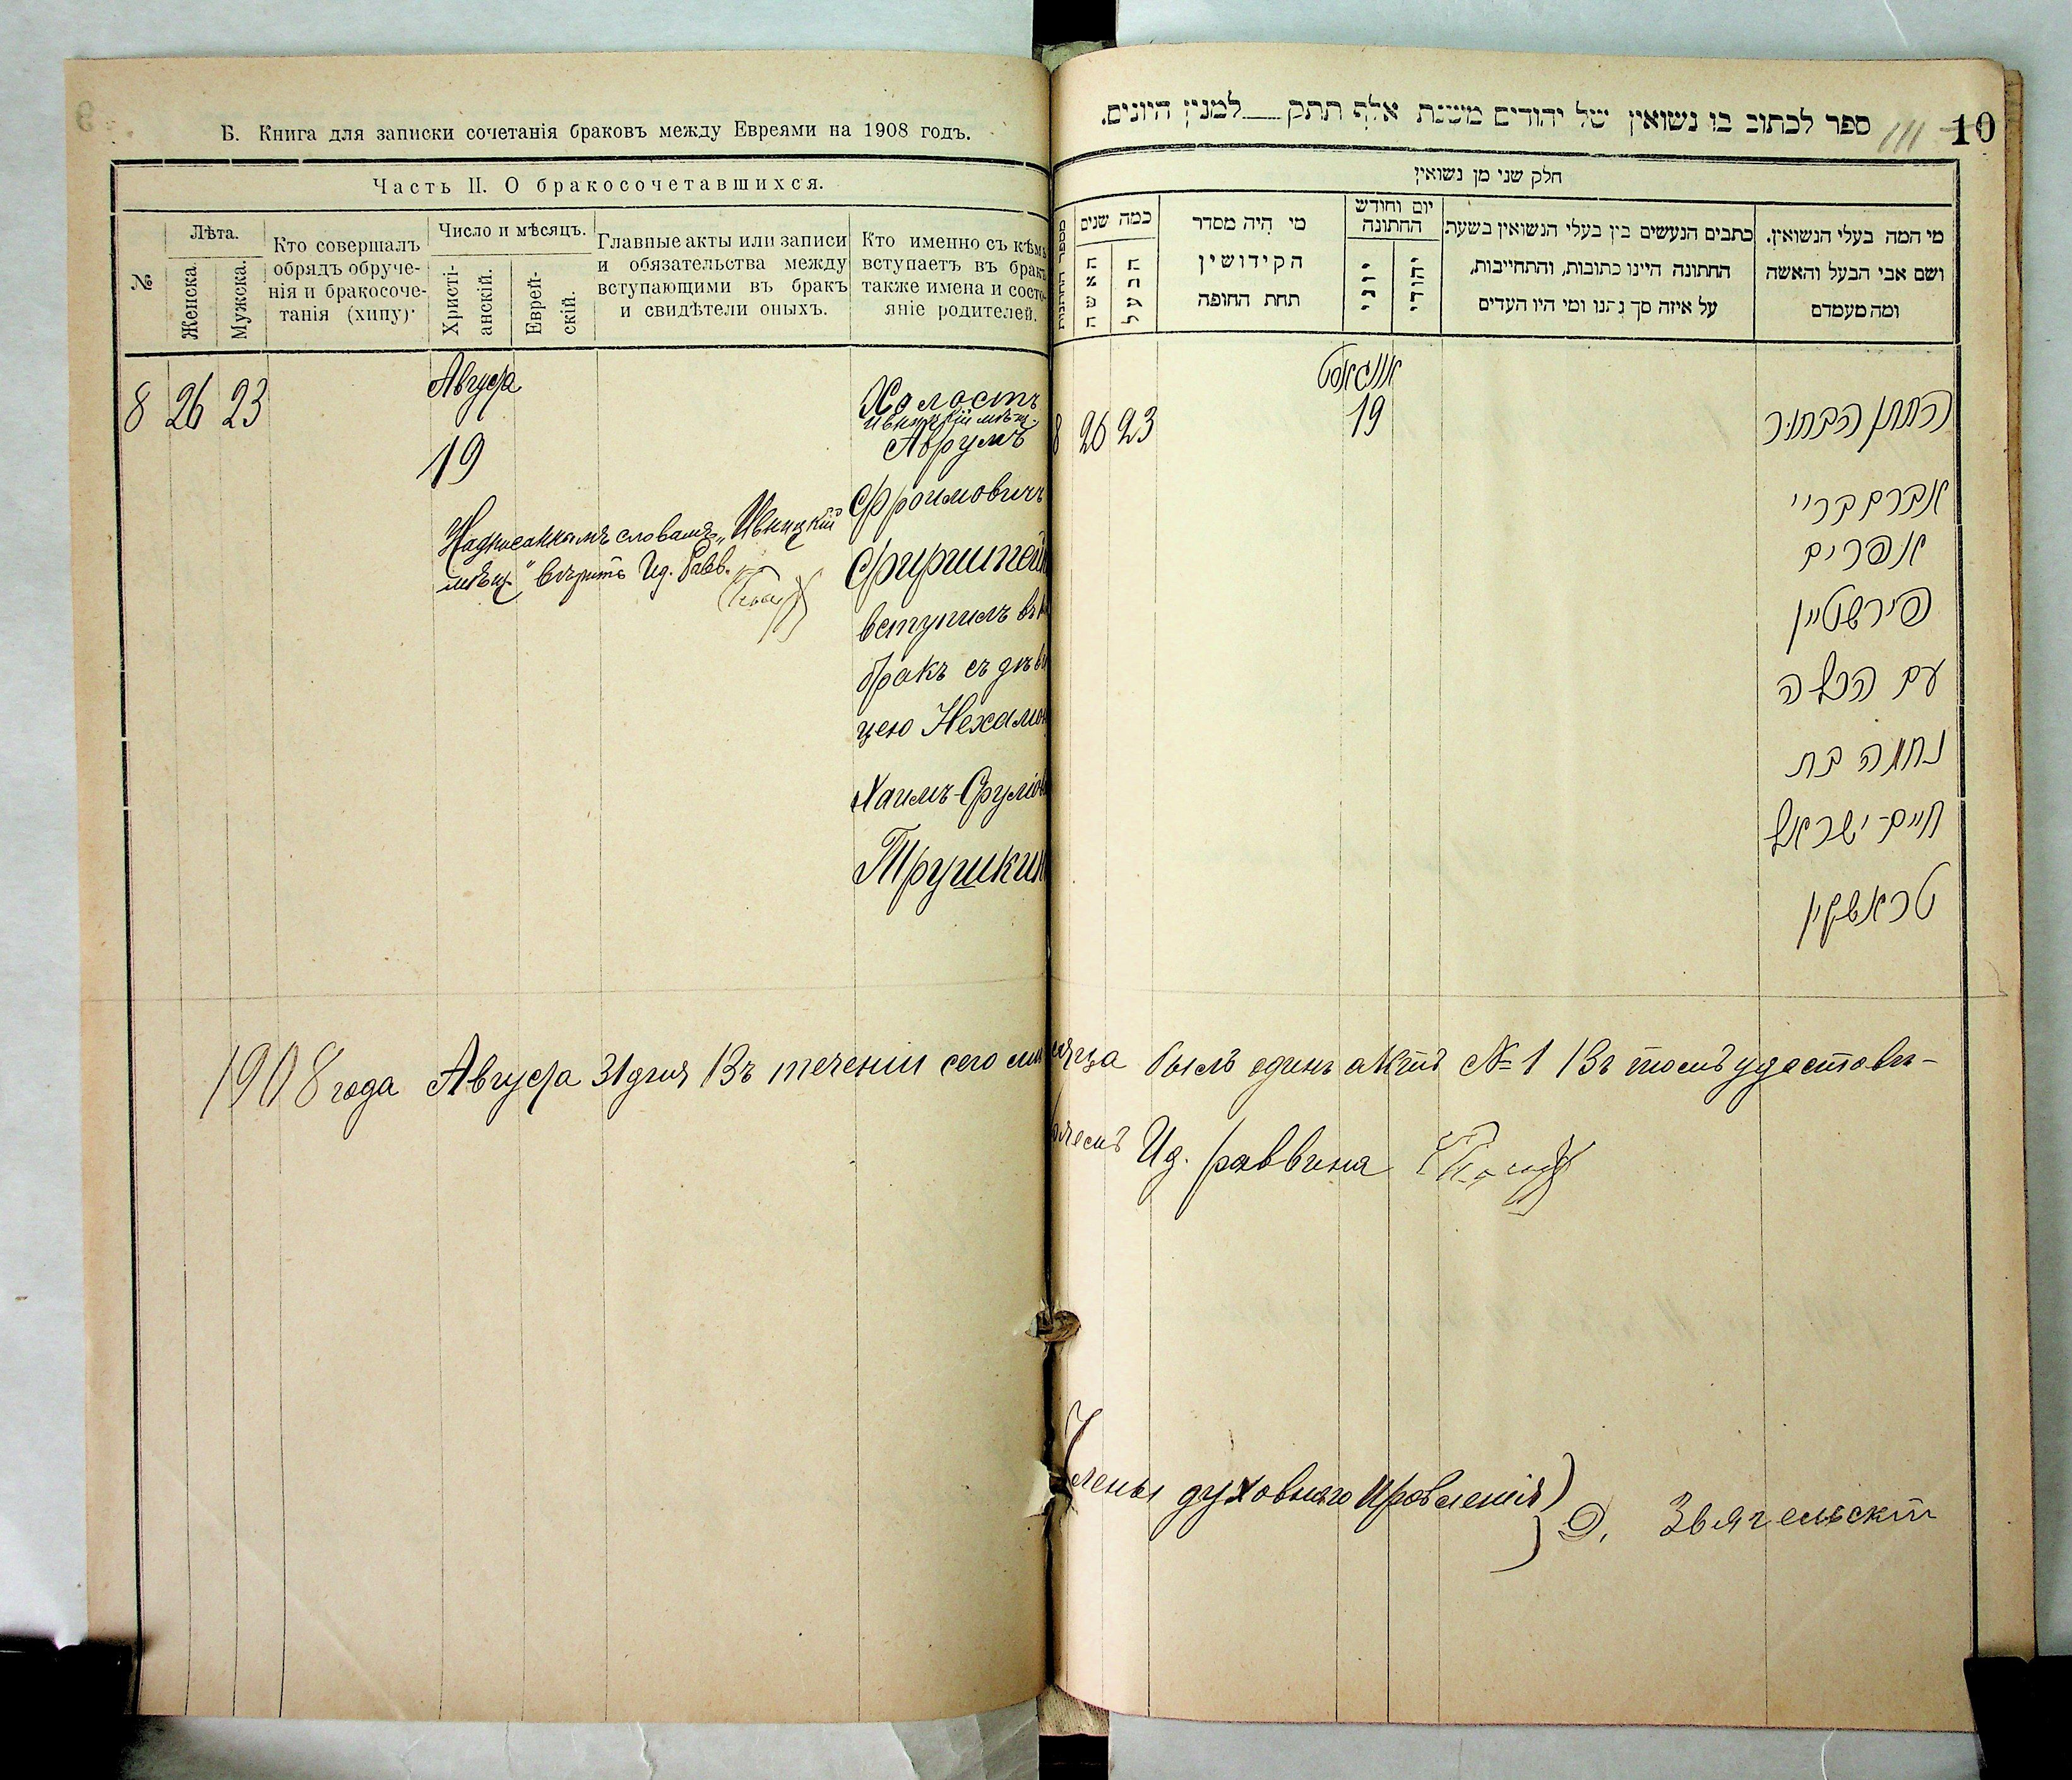 Б. Книга для записки сочетанія браковъ между Евреями на 1908 годъ.
Часть II. О бракосочетавшихся.
№
Лѣта.
Женска.
Мужска.
Кто совершалъ
обрядъ обруче-
нія и бракосоче-
танія (хипу)
Число и мѣсяцъ.
Христі-
анскій.
Еврей-
скій.
Главные акты или записи
и обязательства между
вступающими въ бракъ
и свидѣтели оныхъ.
Кто именно съ кѣмъ
вступаетъ въ бракъ
также имена и состо-
яніе родителей.
8 26 23
Августа
19
Надписаннымъ словамъ „Ивницкій
мѣщ." вѣрить Ид. Равв.
Холостъ
Ивницкій мѣщ.
Аврумъ
Фроимовичъ
Фирштейн
вступилъ въ
бракъ съ дѣви
цею Нехамою
Хаимъ-Сруліов
Трушкин
ספר לכתוב בו נשואין של יהודים משנת אלף תתק למנין היונים.
111
10
חלק שני מן נשואין
מספר החתונות
כמה שנים
האשה
הבעל
מי היה מסדר
הקידושין
תחת החופה
יום וחודש
החתונה
יוני
יהודי
כתבים הנעשים בין בעלי הנשואין בשעת
החתונה היינו כתובות, והתחייבות,
על איזה סך נתנו ומי היו העדים
מי המה בעלי הנשואין.
ושם אבי הבעל והאשה
ומה מעמדם
8 26 23
אווגאסט
19
החתן הבחור
אברם ברי'
אפרים
פירשטיין
עם הכלה
נחמה בת
חיים-ישראל
טראשקין
1908 года Августа 31 дня Въ теченіи сего мѣсяца былъ одинъ актъ № 1 Въ томъ удостовѣ-
ряемъ Ид. раввина
Члены духовнаго Правленія) Д. Звягельскій